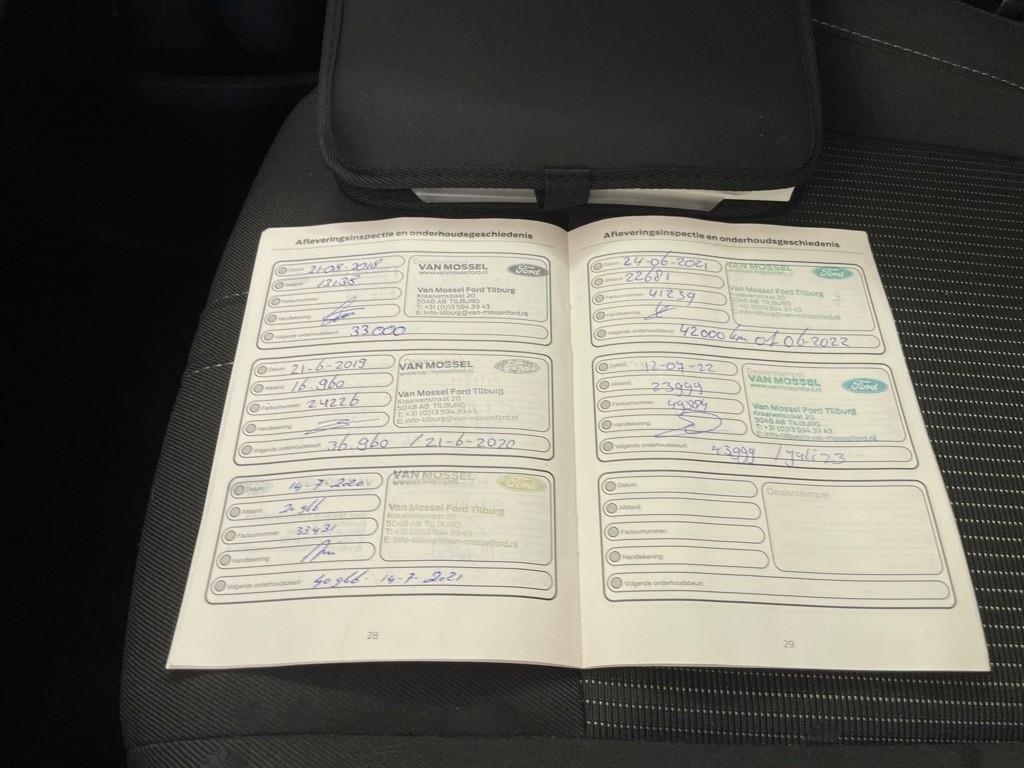 Afleveringsinspectie en onderhoudsgeschiedenis
Datum: 21-08-2018
Afstand: 13138
Factuurnummer:
Handtekening:
Volgende onderhoudsbeurt: 33000
VAN MOSSEL Ford
www.vanmosselford.nl
Van Mossel Ford Tilburg
Kraaivenstraat 20
5048 AB TILBURG
T: +31 (0)13 594 39 43
E: info-tilburg@van-mosselford.nl
Datum: 21-6-2019
Afstand: 16.960
Factuurnummer: 24226
Handtekening:
Volgende onderhoudsbeurt: 36.960 / 21-6-2020
VAN MOSSEL Ford
www.vanmosselford.nl
Van Mossel Ford Tilburg
Kraaivenstraat 20
5048 AB TILBURG
T: +31 (0)13 594 39 43
E: info-tilburg@van-mosselford.nl
Datum: 14-7-2020
Afstand: 20966
Factuurnummer: 33431
Handtekening:
Volgende onderhoudsbeurt: 40966 - 14-7-2021
VAN MOSSEL Ford
Van Mossel Ford Tilburg
Kraaivenstraat 20
5048 AB TILBURG
T: +31 (0)13 594 39 43
E: info-tilburg@van-mosselford.nl
28
Afleveringsinspectie en onderhoudsgeschiedenis
Datum: 24-06-2021
Afstand: 22681
Factuurnummer: 41239
Handtekening:
Volgende onderhoudsbeurt: 42000 km of 06-2022
VAN MOSSEL Ford
www.vanmosselford.nl
Van Mossel Ford Tilburg
Kraaivenstraat 20
5048 AB TILBURG
T: +31 (0)13 594 39 43
E: info-tilburg@van-mosselford.nl
Datum: 12-07-22
Afstand: 23999
Factuurnummer:
Handtekening:
Volgende onderhoudsbeurt: 43999 / Juli 23
Dealerstempel
VAN MOSSEL Ford
www.vanmosselford.nl
Van Mossel Ford Tilburg
Kraaivenstraat 20
5048 AB TILBURG
T: +31 (0)13 594 39 43
E: info-tilburg@van-mosselford.nl
Datum:
Afstand:
Factuurnummer:
Handtekening:
Volgende onderhoudsbeurt:
Dealerstempel
29